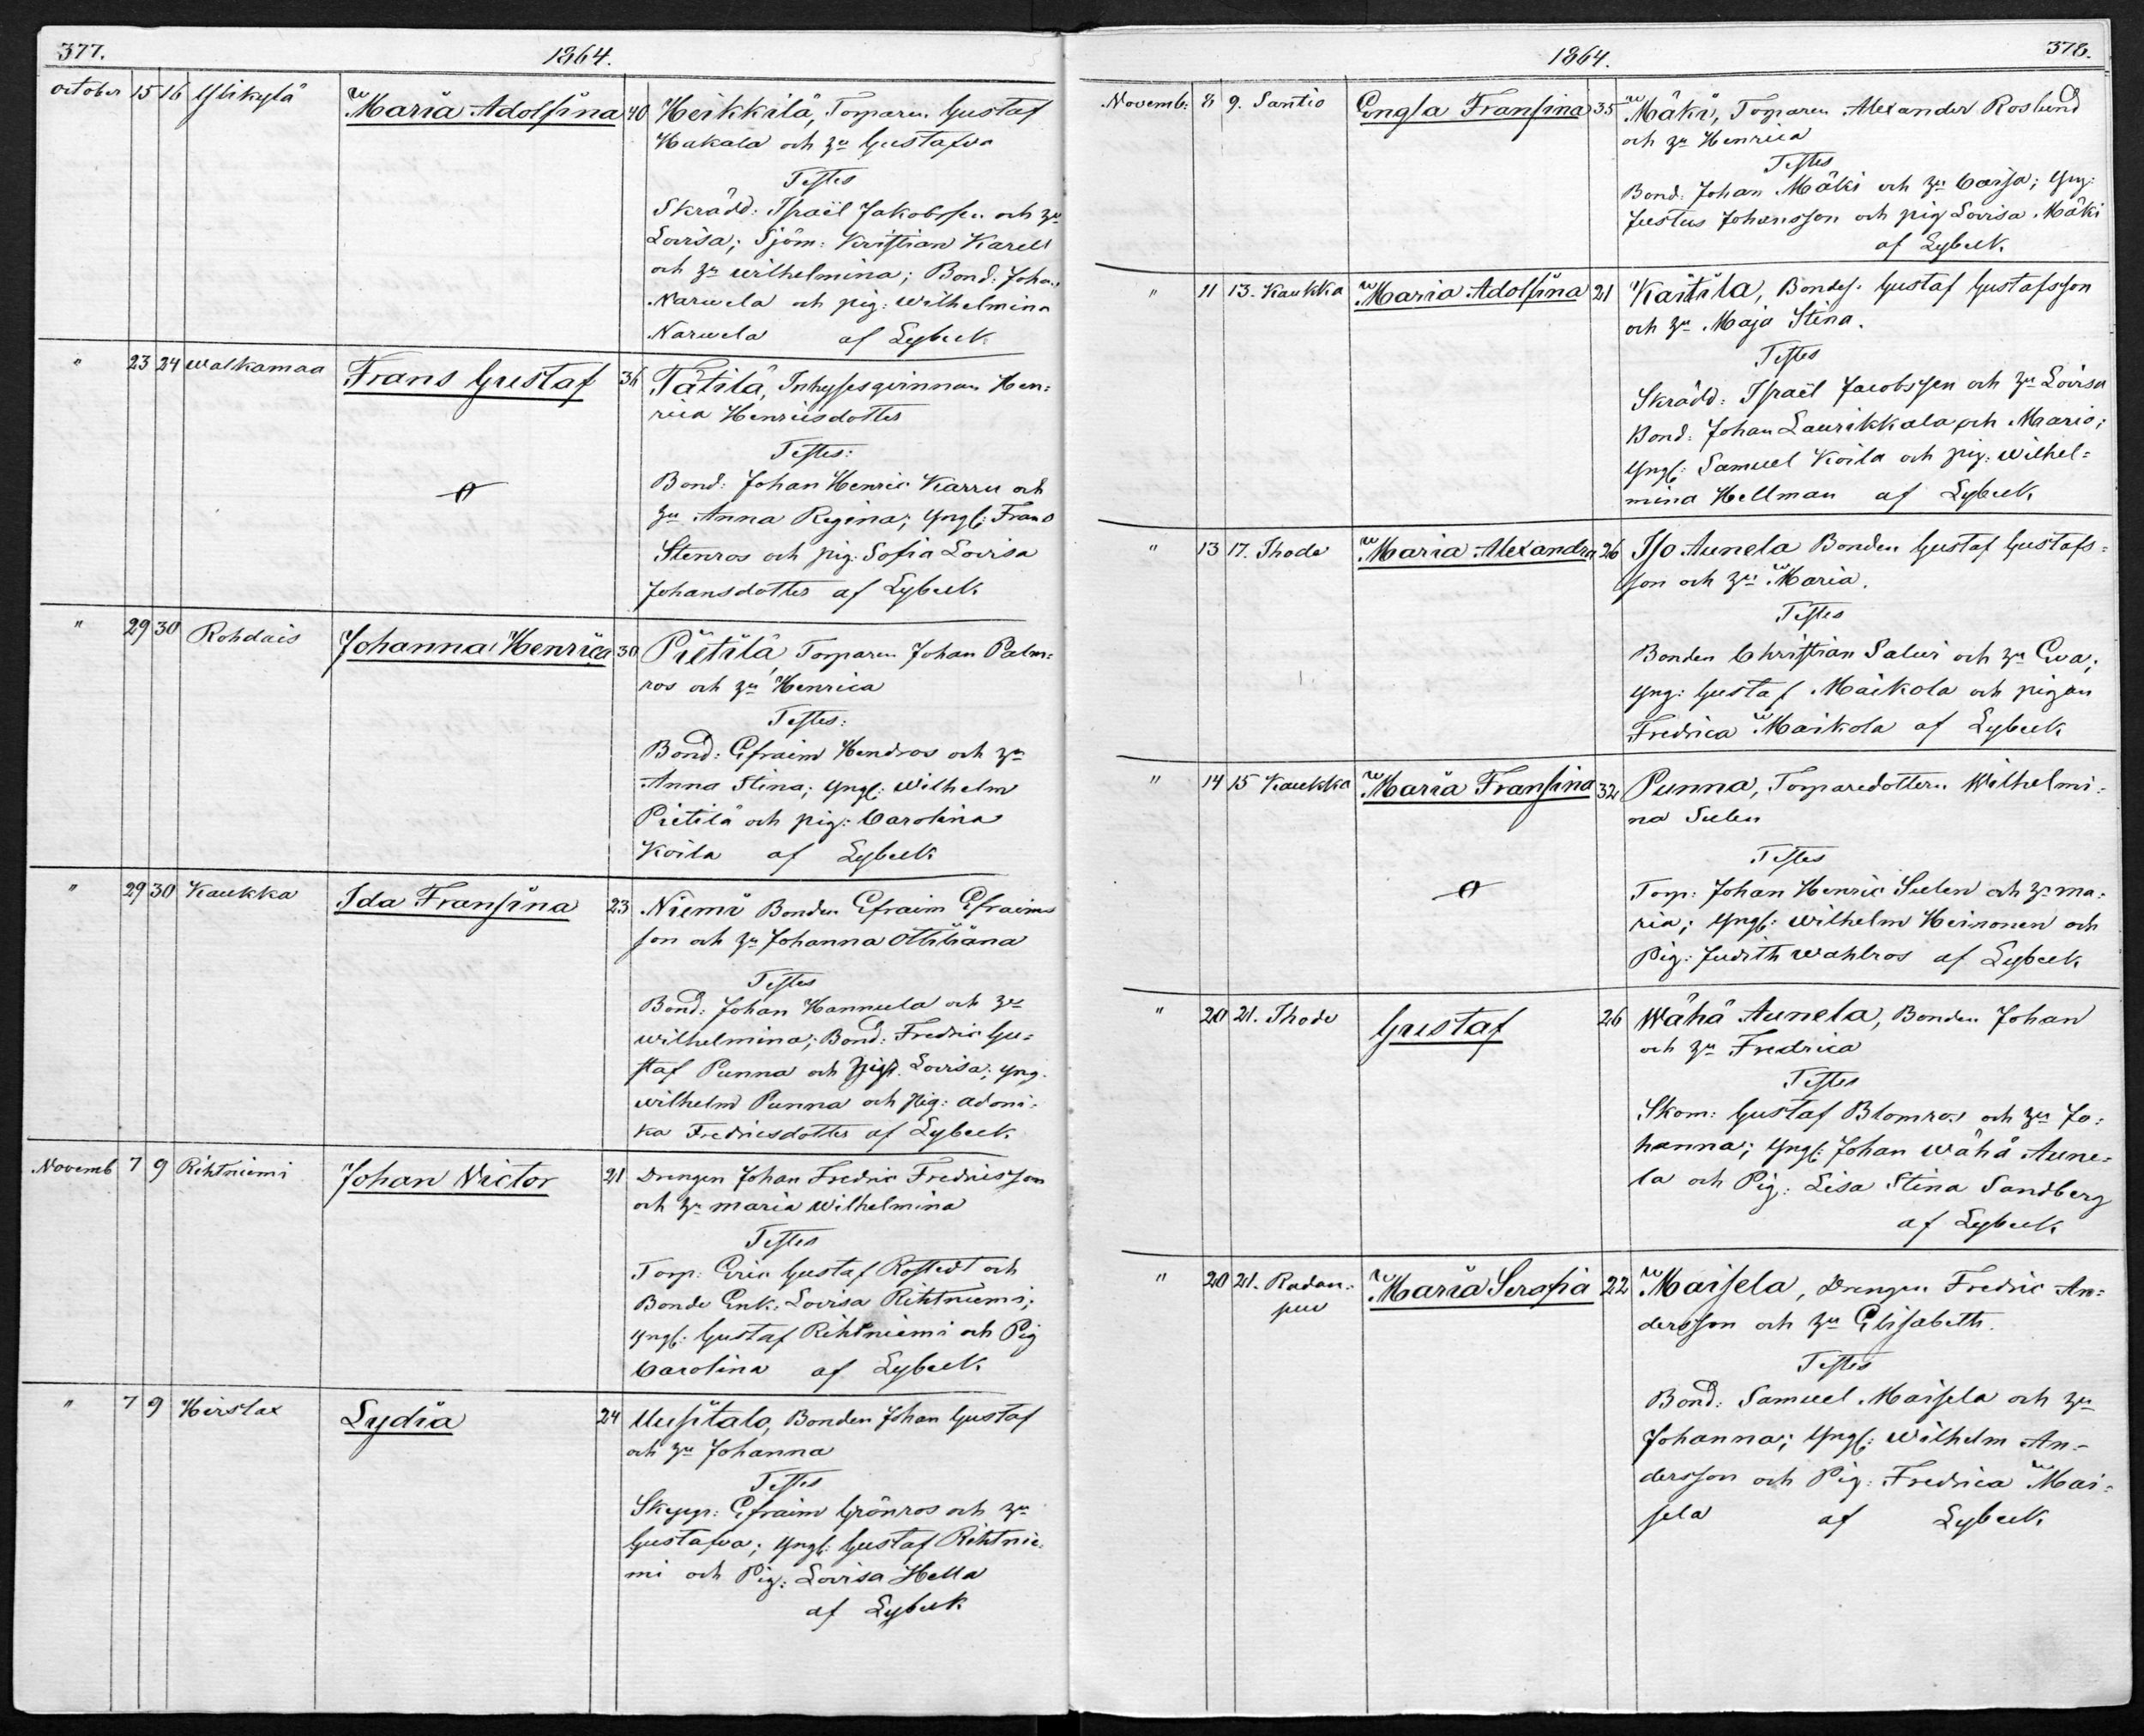 377.
1864.
October 15 16 Ylikylä Maria Adolfina 40 Heikkilä, Torparen Gustaf
Hakala och hu Gustafva
Testes
Skrädd: Israël Jakobsson och hu
Lovisa; Sjöm: Kristian Karell
och hu Wilhelmina; Bond: Johan
Narvela och pig: Wilhelmina
Narvela af Lybeck
" 23 24 Walkamaa Frans Gustaf 36 Tätilä, Inhysesqvinnan Hen=
rica Henricsdotter
Testes:
Bond: Johan Henric Karru och
hu Anna Regina; Yngl: Frans
Stenros och pig: Sofia Lovisa
Johansdotter af Lybeck
" 29 30 Rohdais Johanna Henrica 30 Pietilä, Torparen Johan Palm=
ros och hu Henrica
Testes:
Bond: Efraim Hendros och hu
Anna Stina; Yngl: Wilhelm
Pietilä och pig: Carolina
Koila af Lybeck
" 29 30 Kaukka Ida Fransina 23 Niemi Bonden Efraim Efraims
son och hu Johanna Ottiliana
Testes
Bond: Johan Hannula och hu
Wilhelmina; Bond: Fredric Gu=
staf Punna och Lovisa; yng.
Wilhelm Punna och Pig: Adoni=
ka Fredricsdotter af Lybeck
Novemb 7 9 Rihtniemi Johan Victor 21 Drengen Johan Fredric Fredricsson
och hu Maria Wilhelmina
Testes
Torp: Eric Gustaf Rostedt och
Bonde Enk: Lovisa Rihtniemi;
Yngl: Gustaf Rihtniemi och Pig
Carolina af Lybeck
" 7 9 Hirslax Lydia 24 Uusitalo, Bonden Johan Gustaf
och hu Johanna
Testes
Skepp: Efraim Grönros och hu
Gustafva; Yngl: Gustaf Rihtnie=
mi och Pig: Lovisa Hella
af Lybeck
1864.
378.
Novemb: 8 9. Santio Engla Fransina 35 Mäki, Torparen Alexander Roslund
och hu Henrica
Testes
Bond: Johan Mäki och hu Caisa; Yng:
Justus Johansson och pig Lovisa Mäki
af Lybeck
" 11 13. Kaukka Maria Adolfina 21 Kaitila, Bondes. Gustaf Gustafsson
och hu Maja Stina.
Testes
Skrädd: Israël Jacobsson och hu Lovisa
Bond: Johan Laurikkala och Maria;
Yngl: Samuel Koila och pig: Wilhel=
mina Hellman af Lybeck
" 13 17. Thode Maria Alexandra 26 Iso Aunela Bonden Gustaf Gustafs=
son och hu Maria.
Testes
Bonden Christian Salvi och hu Eva;
Yng: Gustaf Maikola och pigan
Fredrica Maikola af Lybeck
" 14 15 Kaukka Maria Fransina 32 Punna, Torparedottern Wilhelmi=
na Sulen
Testes
Torp: Johan Henric Sulen och hu Ma=
ria; Yngl: Wilhelm Heinonen och
Pig: Judith Wahlros af Lybeck
" 20 21. Thode Gustaf 26 Wähä Aunela, Bonden Johan
och hu Fredrica
Testes
Skom: Gustaf Blomros och hu Jo=
hanna; Yngl: Johan Wähä Aune=
la och Pig: Lisa Stina Sandberg
af Lybeck
" 20 21. Radan=
puu Maria Serafia 22 Maisela, Drengen Fredric An=
dersson och hu Elisabeth.
Testes
Bond: Samuel Maisela och hu
Johanna; Yngl: Wilhelm An=
dersson och Pig: Fredrica Mai=
sela af Lybeck